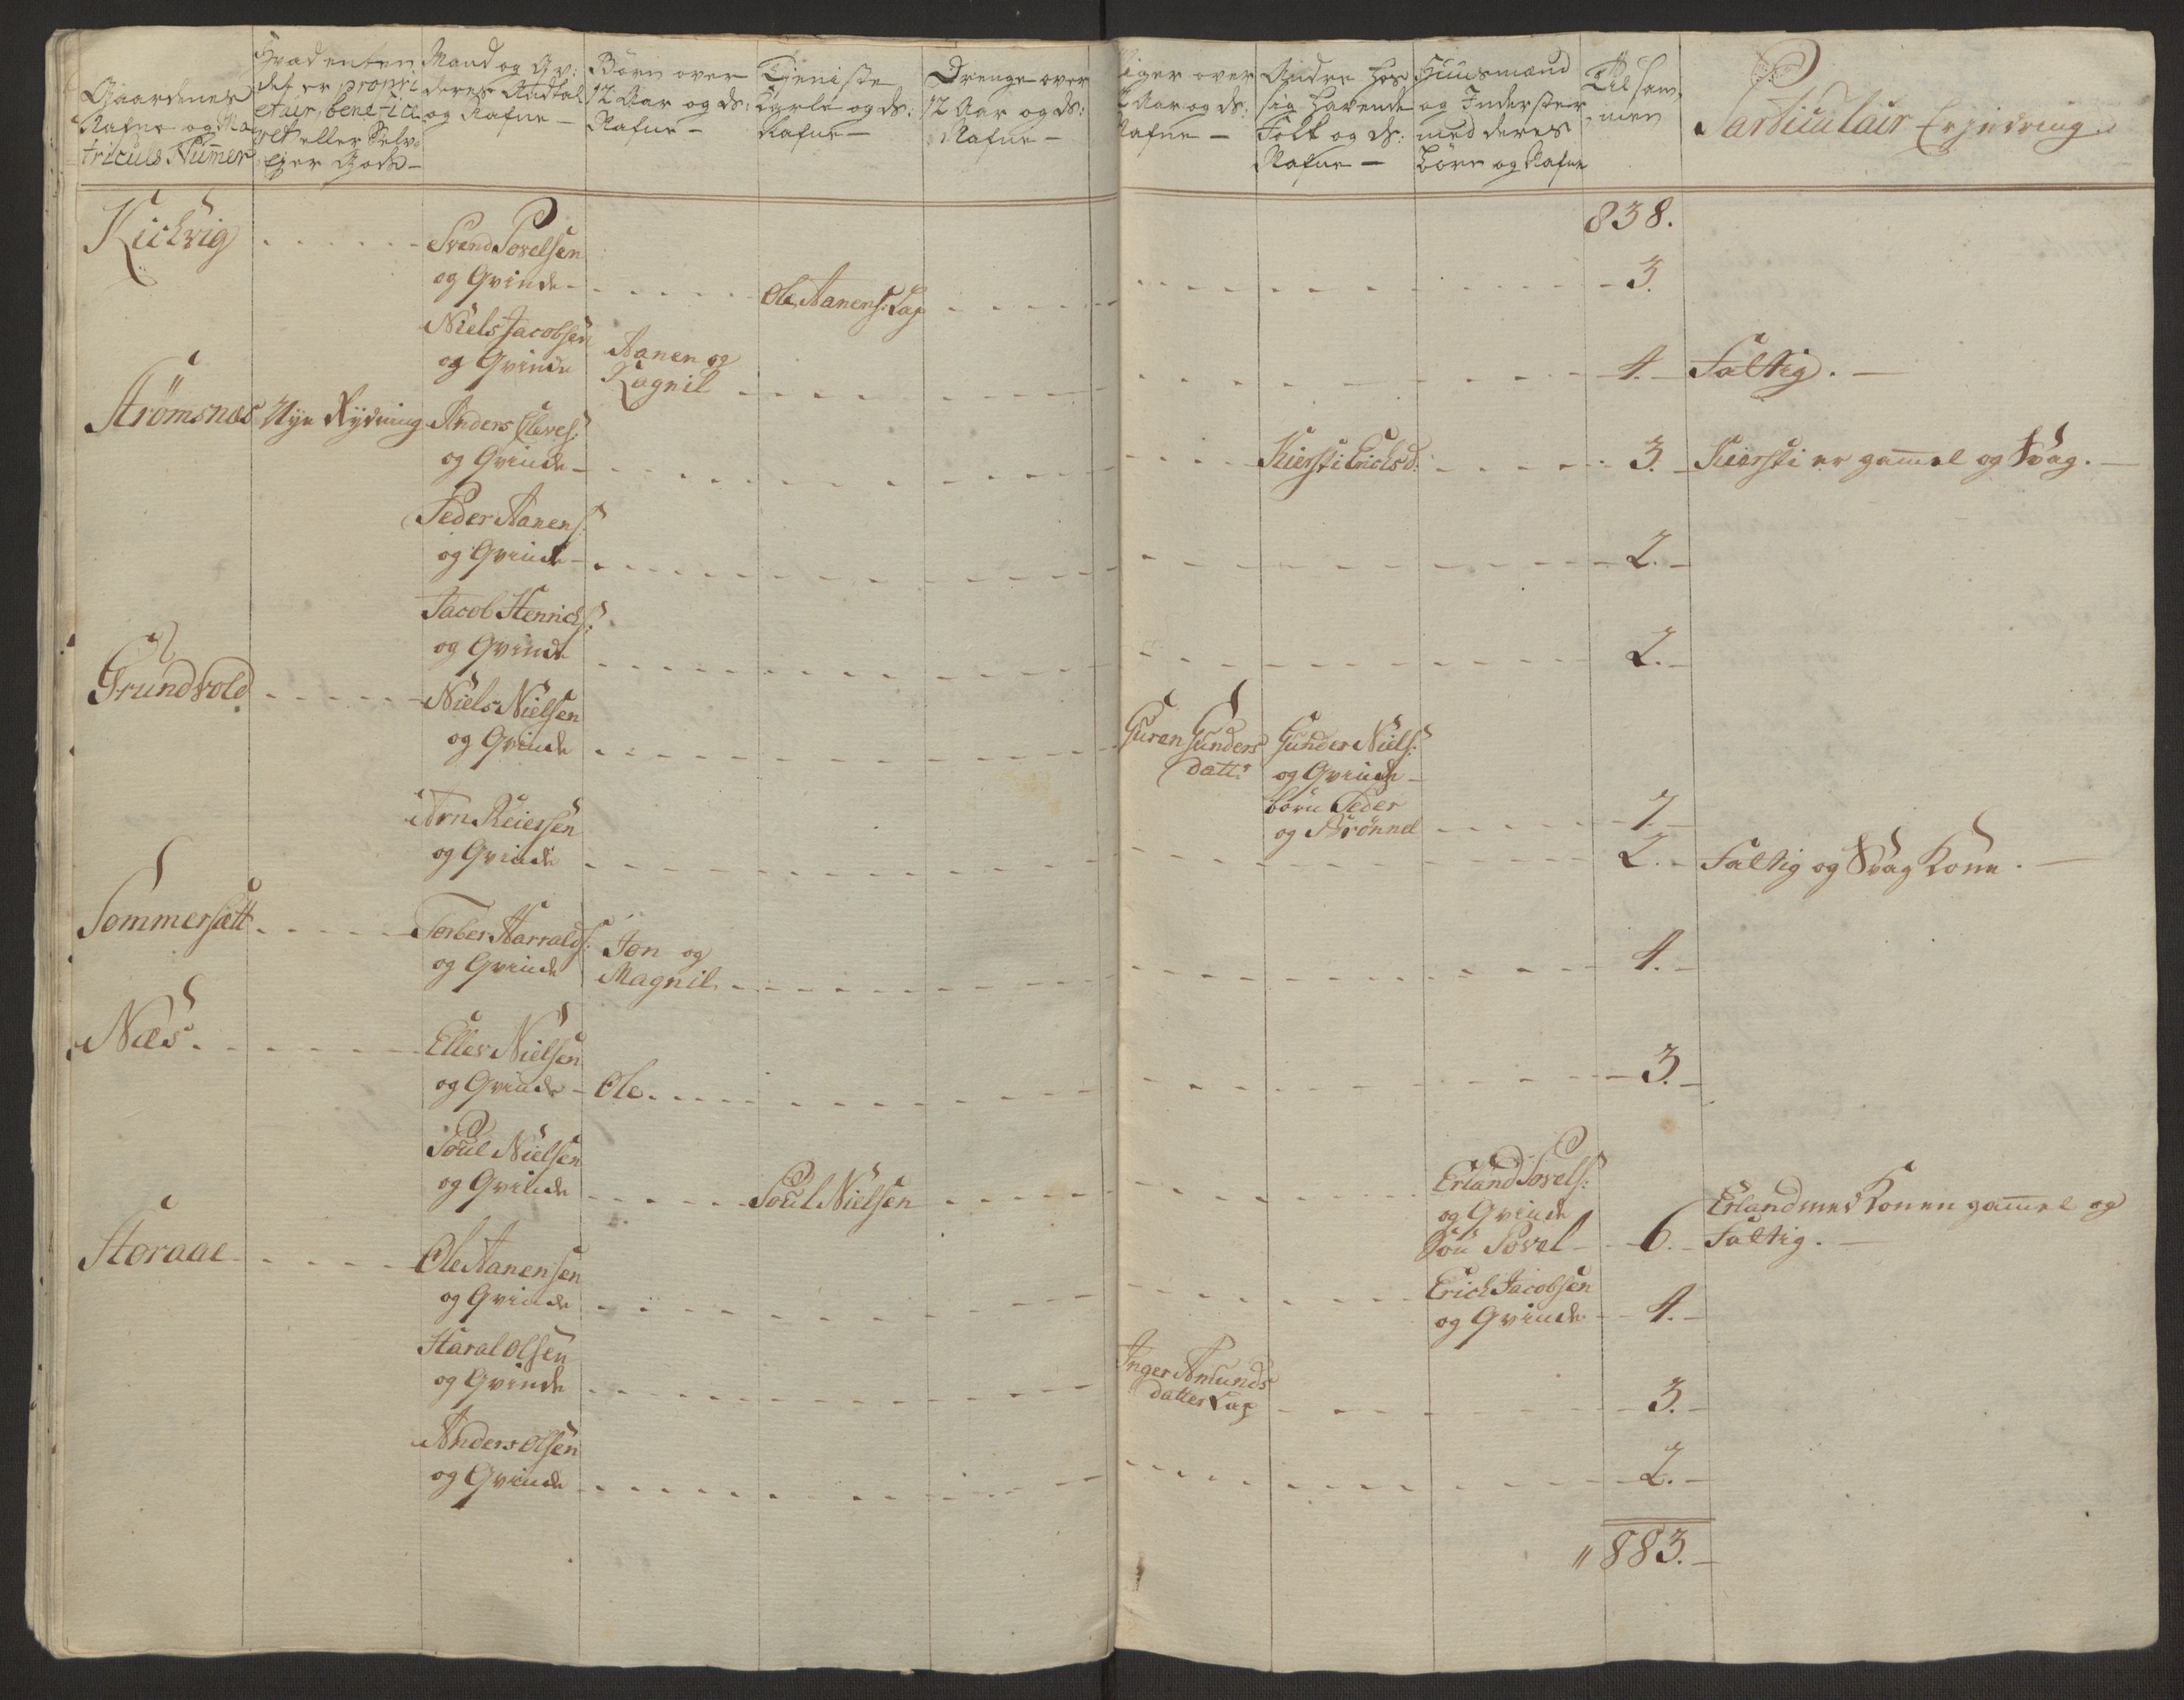 Gaardenes
Nafne og Ma
triculs Numer
Hvad enten
det er propri
etair, benefici
ret eller Selv
Ejer Gods -
Mand og Qv:
deres Andtal
og Nafne -
Börn over
12 Aar og ds:
Nafne -
Tieniste
Karle og ds:
Nafne -
Drenge over
12 Aar og ds:
Nafne -
Piger over
12 Aar og ds:
Nafne -
Andre hos
sig havende
Folk og ds:
Nafne -
Huusmænd
og Inderster
med deres
Börn og Nafne
Tilsam
men
Particulair Erindring.
838.
Kichvig
Svend Povelsen
og Qvinde - Ole Aanens: Lap 3.
Niels Jacobsen
og Qvinde Aanen og
Ragnil 4. Fattig. -
Strömsnæs Nye Rydning Anders Olves:
og Qvinde - Kiersti Erichsd: 3. Kiersti er gamel og Svag. -
Peder Aanens:
og Qvinde - 2. -
Jacob Henrichs:
og Qvinde 2. -
Grundvold Niels Nielsen
og Qvinde Guren Gunders
datt: Gunder Niels:
og Qvinde -
börn Peder
og Brönnel 7. -
Arn Reiersen
og Qvinde 2. - Fattig og Svag Kone. -
Sommersætt Torber Harralds:
og Qvinde Jon og
Magnil 4. -
Næs Eller Nielsen
og Qvinde - Ole 3. -
Poul Nielsen
og Qvinde Poul Nielsen Erland Povels:
og Qvinde
Sön Povel - 6. - Erland med Konen gamel og
Fattig. -
Storaae Ole Aanensen
og Qvinde Erich Jacobsen
og Qvinde 4. -
Haral Olsen
og Qvinde Inger Amunds
datter Lap 3. -
Anders Olsen
og Qvinde 2. -
" 883. -